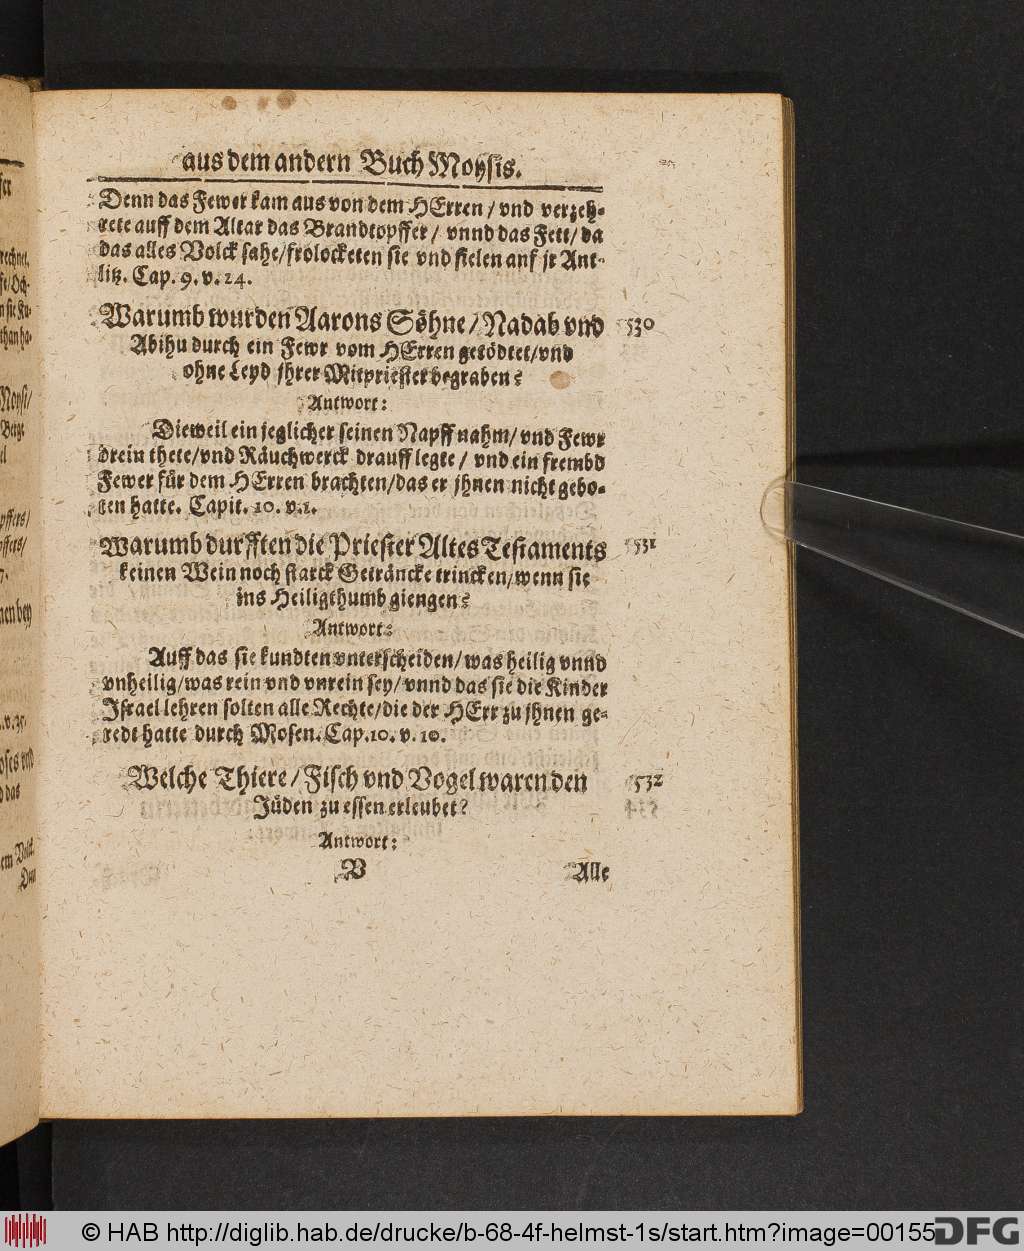 aus dem andern Buch Moysis.
Denn das Fewer kam aus von dem HErren / vnd verzeh-
rete auff dem Altar das Brandtopffer / vnnd das Fett / da
das alles Volck sahe / frolocketen sie vnd fielen auf jr Ant-
litz. Cap. 9. v. 24.
Warumb wurden Aarons Söhne / Nadab vnd 530
Abihu durch ein Fewr vom HErren getödtet / vnd
ohne Leyd jhrer Mitpriester begraben?
Antwort:
Dieweil ein jeglicher seinen Napff nahm / vnd Fewr
drein thete / vnd Räuchwerck drauff legte / vnd ein frembd
Fewer für dem HErren brachten / das er jhnen nicht gebo-
ten hatte. Capit. 10. v. 1.
Warumb durfften die Priester Altes Testaments 531
keinen Wein noch starck Geträncke trincken / wenn sie
ins Heiligthumb giengen?
Antwort:
Auff das sie kundten vnterscheiden / was heilig vnnd
vnheilig / was rein vnd vnrein sey / vnnd das sie die Kinder
Israel lehren solten alle Rechte / die der HErr zu jhnen ge-
redt hatte durch Mosen. Cap. 10. v. 10.
Welche Thiere / Fisch vnd Vogel waren den 532
Jüden zu essen erleubet?
Antwort:
V Alle
© HAB http://diglib.hab.de/drucke/b-68-4f-helmst-1s/start.htm?image=00155
DFG